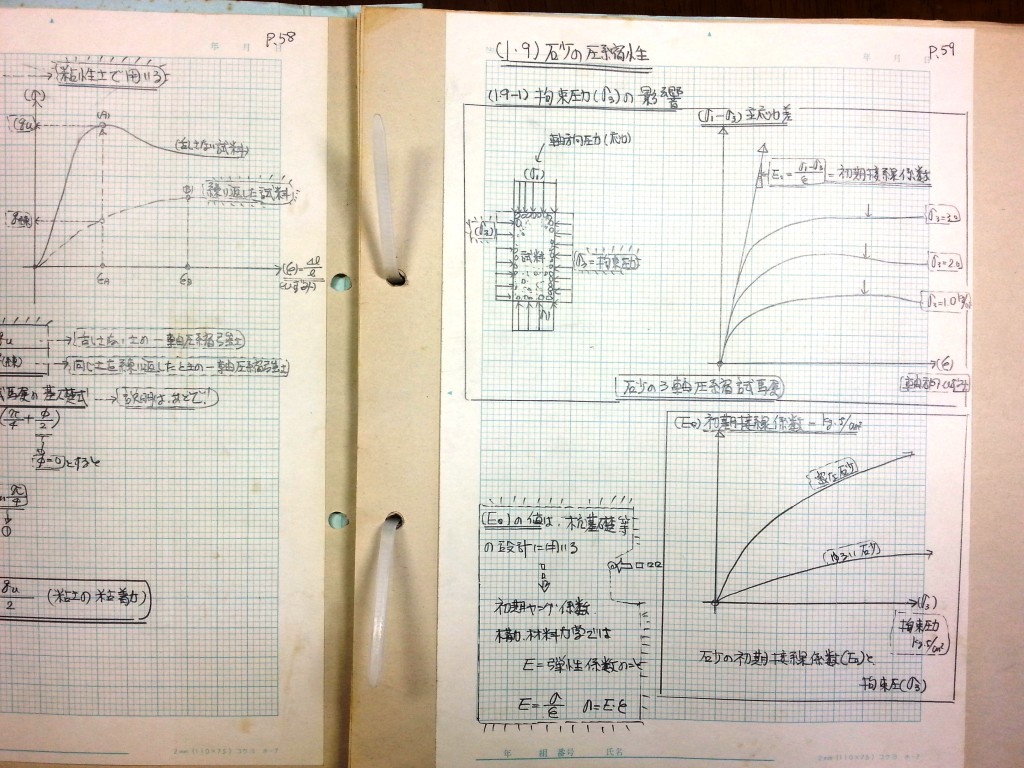 P.58
年 月 日
粘性土で用いる
(σ)
(qu)
(A)
(乱さない試料)
練り返した試料
εA
εB
(ε)=Δl/l
(ひずみ)
qu
→(乱さない土の一軸圧縮強さ)
→(同じ土を練り返したときの一軸圧縮強さ)
試験の基礎式 → 説明は、あとで!
(π/4+φ/2)
φ=0とすると
π/4
①
qu/2 (粘土の粘着力)
2mm(110×75) コクヨ ホ-7
P.59
年 月 日
(1.9) 砂の圧縮性
(1.9-1) 拘束圧力(σ3)の影響
軸方向圧力(応力)
(σ1)
(σ3)
試料
σ3=拘束圧力
(σ1-σ3) 主応力差
E0=σ1-σ3/ε=初期接線係数
σ3=3.0
σ3=2.0
σ3=1.0
(ε)
軸方向ひずみ
砂の3軸圧縮試験
(E0) 初期接線係数=kg・f/cm²
密な砂
ゆるい砂
(σ3)
拘束圧力
kg・f/cm²
砂の初期接線係数(E0)と、
拘束圧(σ3)
(E0)の値は、杭基礎等
の設計に用いる
初期ヤング係数
構力、材料力学では
E=弾性係数のこと
E=σ/ε σ=Eε
年 組 番号 氏名
2mm(110×75) コクヨ ホ-7